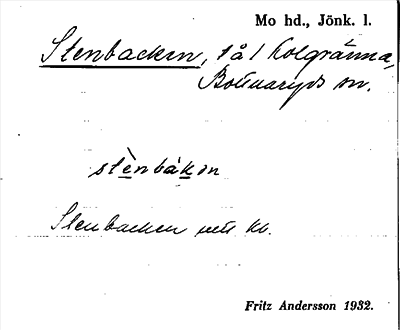 Mo hd., Jönk. l.
Stenbacken, t å l Kolgränna,
Bottnaryds sn.
stènbákɛn
Stenbacken kl.
Fritz Andersson 1932.